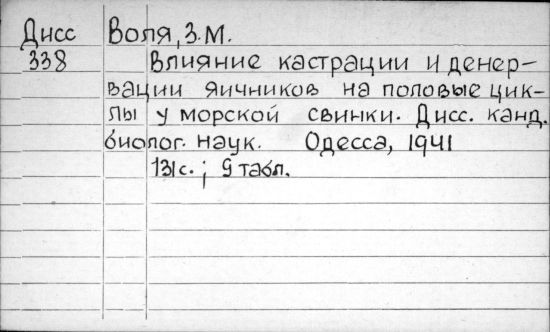 Дисс Воля, З.М.
338 Влияние кастрации и денер-
вации яичников на половые цик-
лы у морской свинки. Дисс. канд.
биолог. наук. Одесса, 1941
131с.; 9 табл.